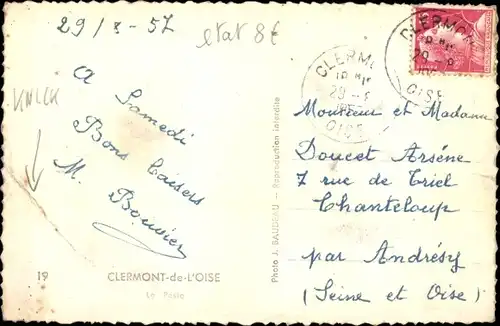 29/8-57
etat 8€
KNICK
A Samedi
Bons baisers
M. Bouvier
19 CLERMONT-de-L'OISE
La Poste
Photo J. BAUDEAU - Reproduction Interdite
CLERMONT
OISE
CLERMONT
29-8
OISE
Monsieur et Madame
Doucet Arsène
7 rue de Triel
Chanteloup
par Andrésy
(Seine et Oise)